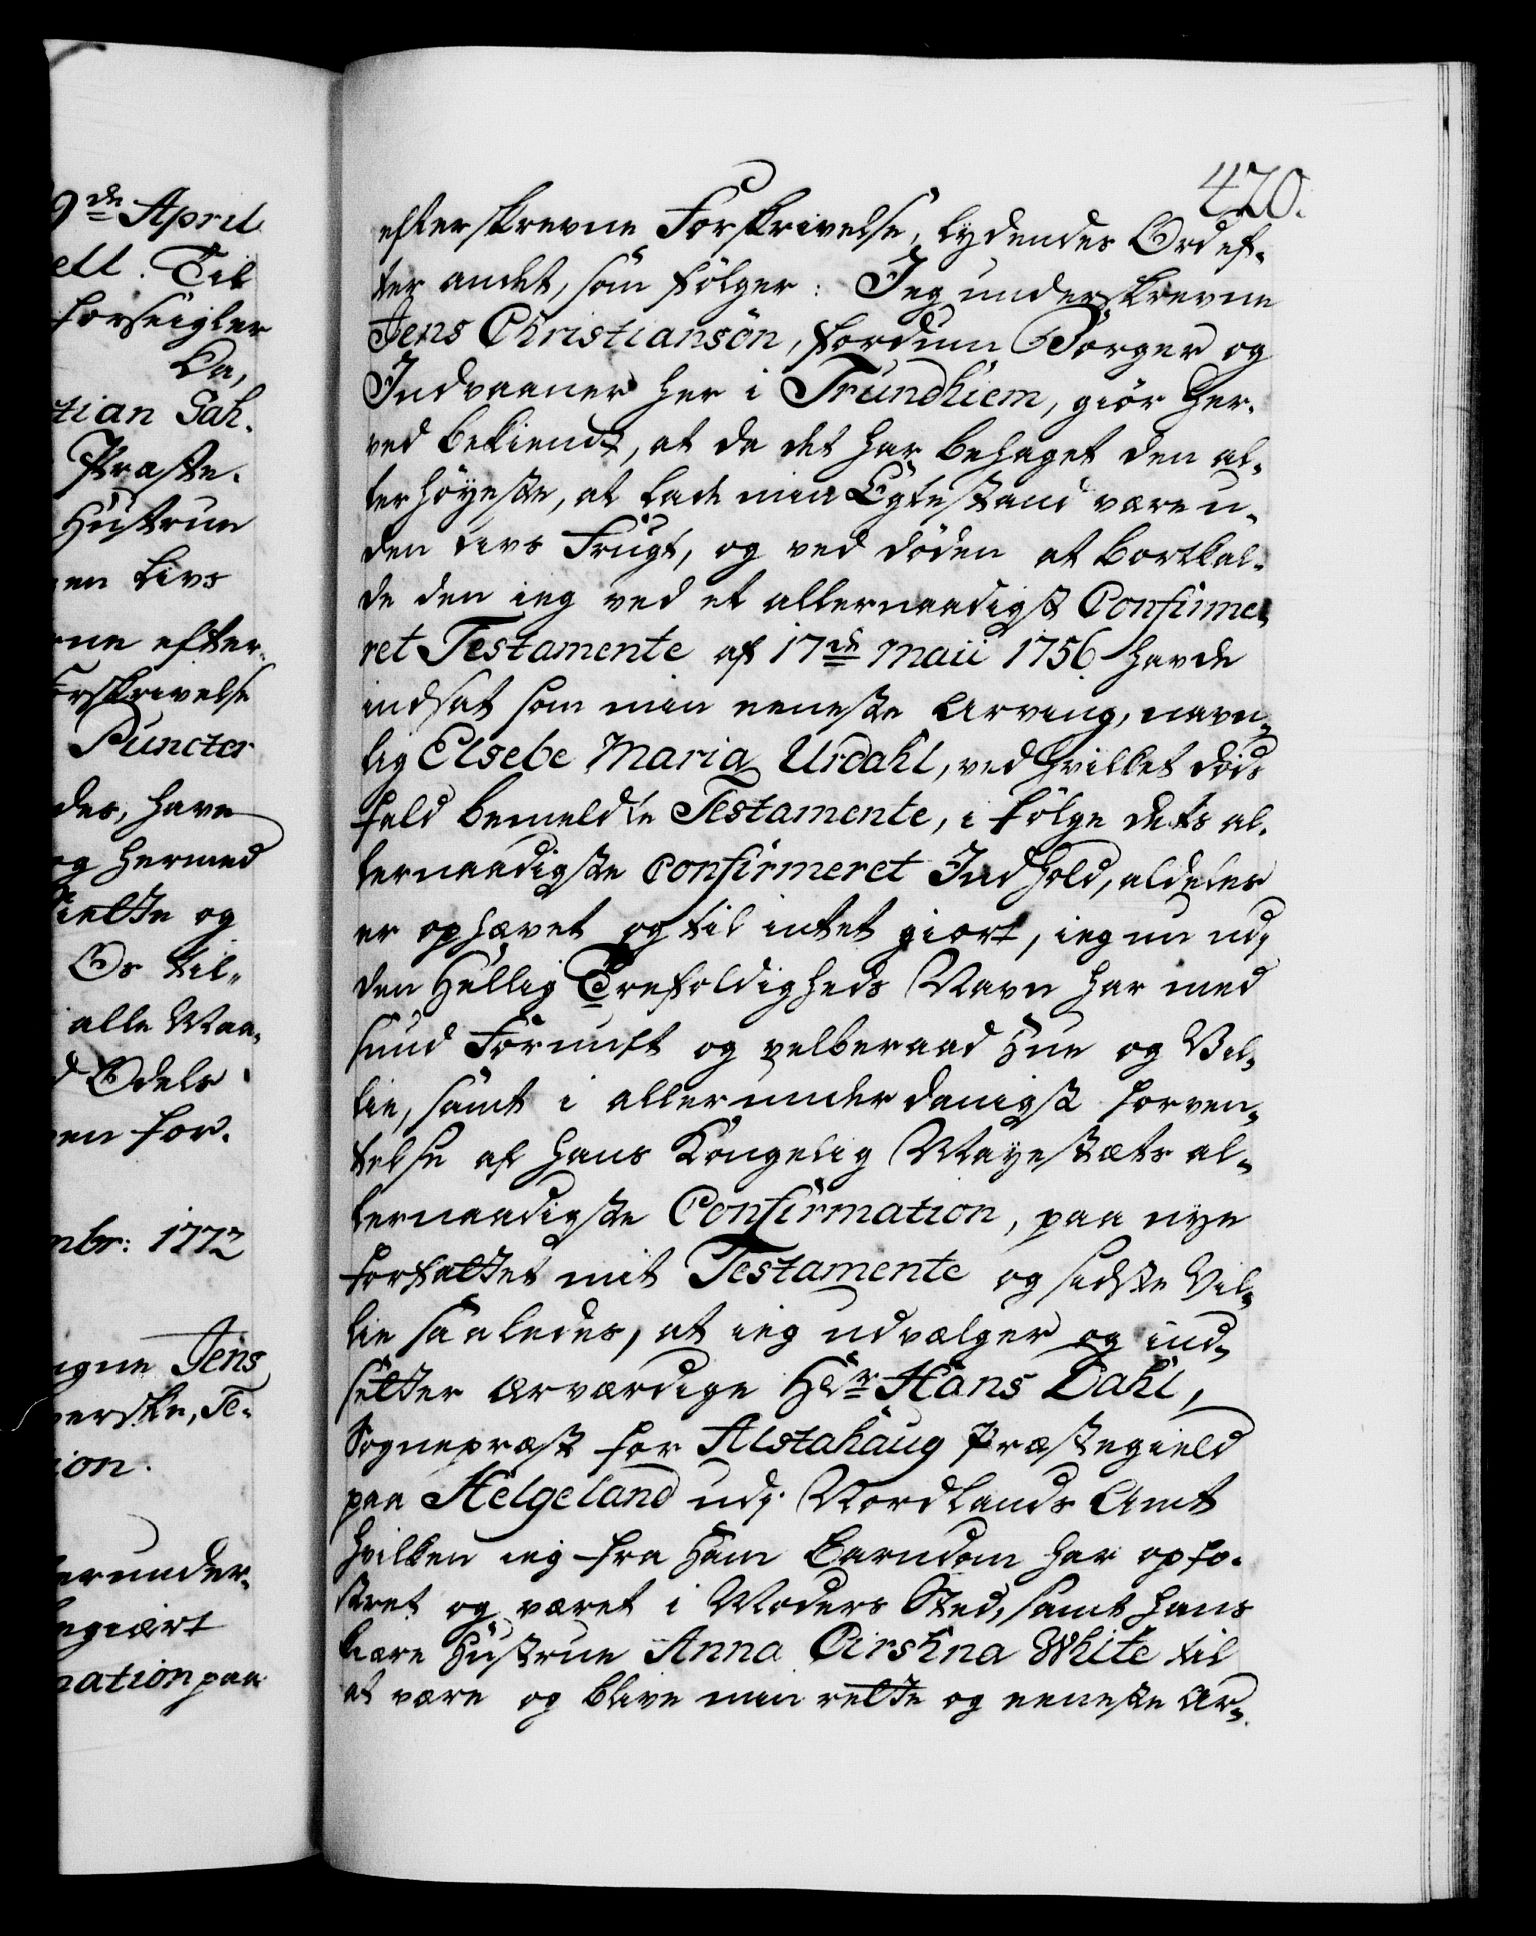 9de April
ell. Til
forseigler
Da,
tian Sah-
Præste-
Hustrue
en Livs
ne efter-
orskrivelse
Puncter
des, have
og hermed
iette og
Os til-
alle Maa-
d Odels
en for-
mbr: 1772
egne Jens
verske, Te-
ion.
erunder-
begiært
nation paa
420.
efterskrevne Forskrivelse, lydendes Ord ef-
ter andet, som følger: Jeg underskrevne
Jens Christiansøn, fordum Borger og
Indvaaner her i Trundhiem, giør her-
ved bekiendt, at da det har behaget den al-
lerhøyeste, at lade min Egtestand være u-
den Livs Frugt, og ved døden at bortkal-
de den ieg ved et allernaadigst Confirme-
ret Testamente af 17de Maii 1756 havde
indsat som min eeneste Arving, navn-
lig Elsebe Maria Urdahl, ved hvilket Døds
fald bemeldte Testamente, i følge dets al-
lernaadigste Confirmeret Indhold, aldeles
er ophævet og til intet giort, ieg nu udj
den Hellig Trefoldigheds Navn har med
sund Fornuft og velberaad Hue og Vil-
lie, samt i allerunderdanigst forven-
telse af Hans Kongelig Mayestæts al-
lernaadigste Confirmation, paa nye
forfattet mit Testamente og sidste Vil-
lie saaledes, at ieg udvælger og ind-
setter ærværdige Hr Hans Dahl,
Sognepræst for Alstahaug Præstegield
paa Helgeland udj Nordlands Amt
hvilken ieg fra Ham Barndom har opfo-
stret og været i Moders Sted, samt hans
kiære Hustrue Anna Cirstina White til
at være og blive min rette og eeneste Ar-